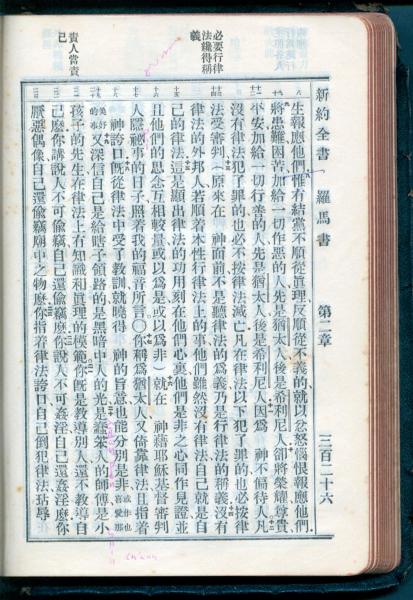 新約全書 羅馬書 第二章 三百二十六
生報應他們惟有結黨不順從眞理反順從不義的就以忿怒惱恨報應他們
將患難困苦加給一切作惡的人先是猶太人後是希利尼人卻將榮耀尊貴
平安加給一切行善的人先是猶太人後是希利尼人因爲 神不偏待人凡
沒有律法犯了罪的也必不按律法滅亡凡在律法以下犯了罪的也必按律
必要行律
法纔得稱
義
法受審判(原來在 神面前不是聽律法的爲義乃是行律法的稱義沒有
律法的外邦人若順着本性行律法上的事他們雖然沒有律法自己就是自
己的律法這是顯出律法的功用刻在他們心裏他們是非之心同作見證並
且他們的思念互相較量或以爲是或以爲非)就在 神藉耶穌基督審判
人隱祕事的日子照着我的福音所言〇你稱爲猶太人又倚靠律法且指着
神誇口旣從律法中受了教訓就曉得 神的旨意也能分別是非或作也喜愛那
美好的事又深信自己是給瞎子領路的是黑暗中人的光是蠢笨人的師傅是小
責人當責
己
孩子的先生在律法上有知識和眞理的模範你旣是教導別人還不教導自
己麼你講說人不可偷竊自己還偷竊麼你說人不可姦淫自己還姦淫麼你
厭惡偶像自己還偷竊廟中之物麼你指着律法誇口自己倒犯律法玷辱